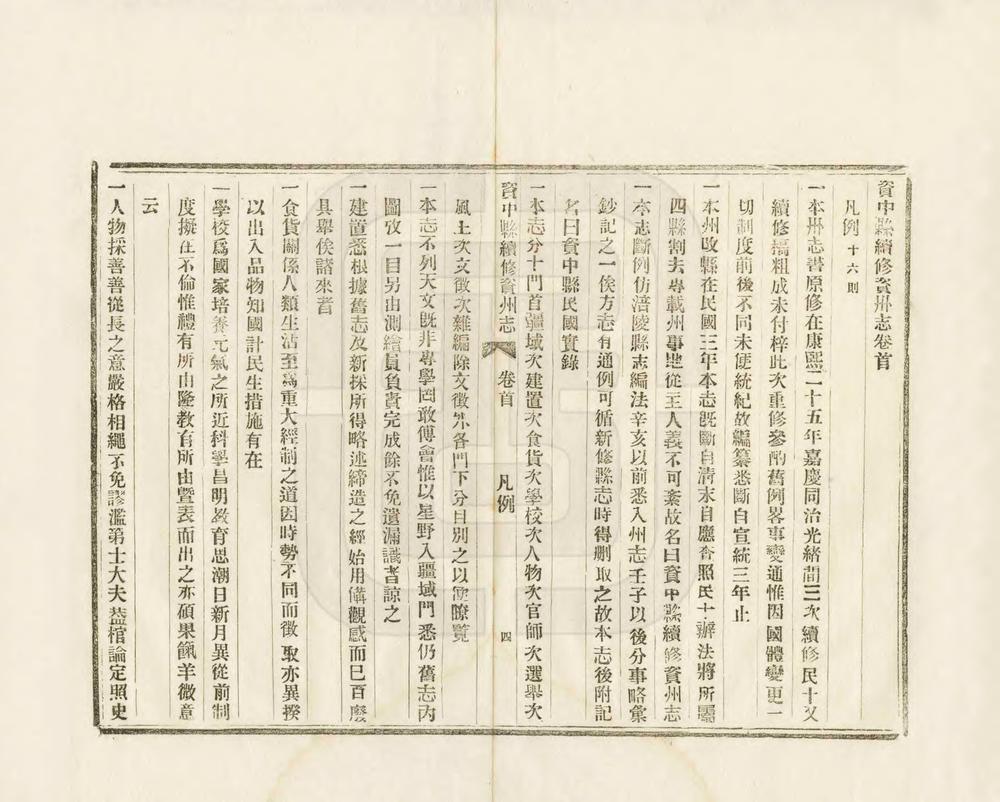 資中縣續修資州志卷首
凡例十六則
一本州志書原修在康熙二十五年嘉慶同治光緒間三次續修民十又
續修稿粗成未付梓此次重修參酌舊例畧事變通惟因國體變更一
切制度前後不同未便統紀故編纂悉斷自宣統三年止
一本州改縣在民國三年本志既斷自清末自應查照民十辦法將所屬
四縣割去專載州事地從主人義不可紊故名曰資中縣續修資州志
一本志斷例仿涪陵縣志編法辛亥以前悉入州志壬子以後分事略彙
鈔記之一俟方志有通例可循新修縣志時得刪取之故本志後附記
名曰資中縣民國實錄
一本志分十門首疆域次建置次食貨次學校次人物次官師次選舉次
資中縣續修資州志 卷首 凡例 四
風土次文徵次雜編除文徵外各門下分目別之以便瞭覽
一本志不列天文既非專學罔敢傅會惟以星野入疆域門悉仍舊志內
圖攷一目另由測繪員負責完成餘不免遺漏識者諒之
一建置悉根據舊志及新採所得略述締造之經始用備觀感而已百廢
具舉俟諸來者
一食貨關係人類生活至爲重大經制之道因時勢不同而徵取亦異揆
以出入品物知國計民生措施有在
一學校爲國家培養元氣之所近科學昌明教育思潮日新月異從前制
度擬在不倫惟禮有所由隆教有所由暨表而出之亦碩果餼羊微意
云
一人物採善善從長之意嚴格相繩不免謬濫第士大夫葢棺論定照史